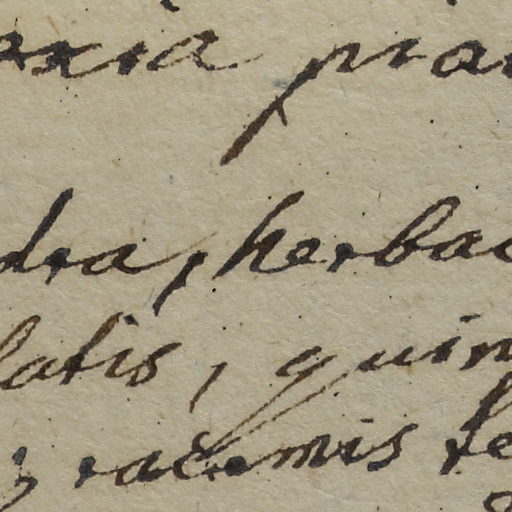 axia pian
dra, herbac
latis, quin
; racemis te